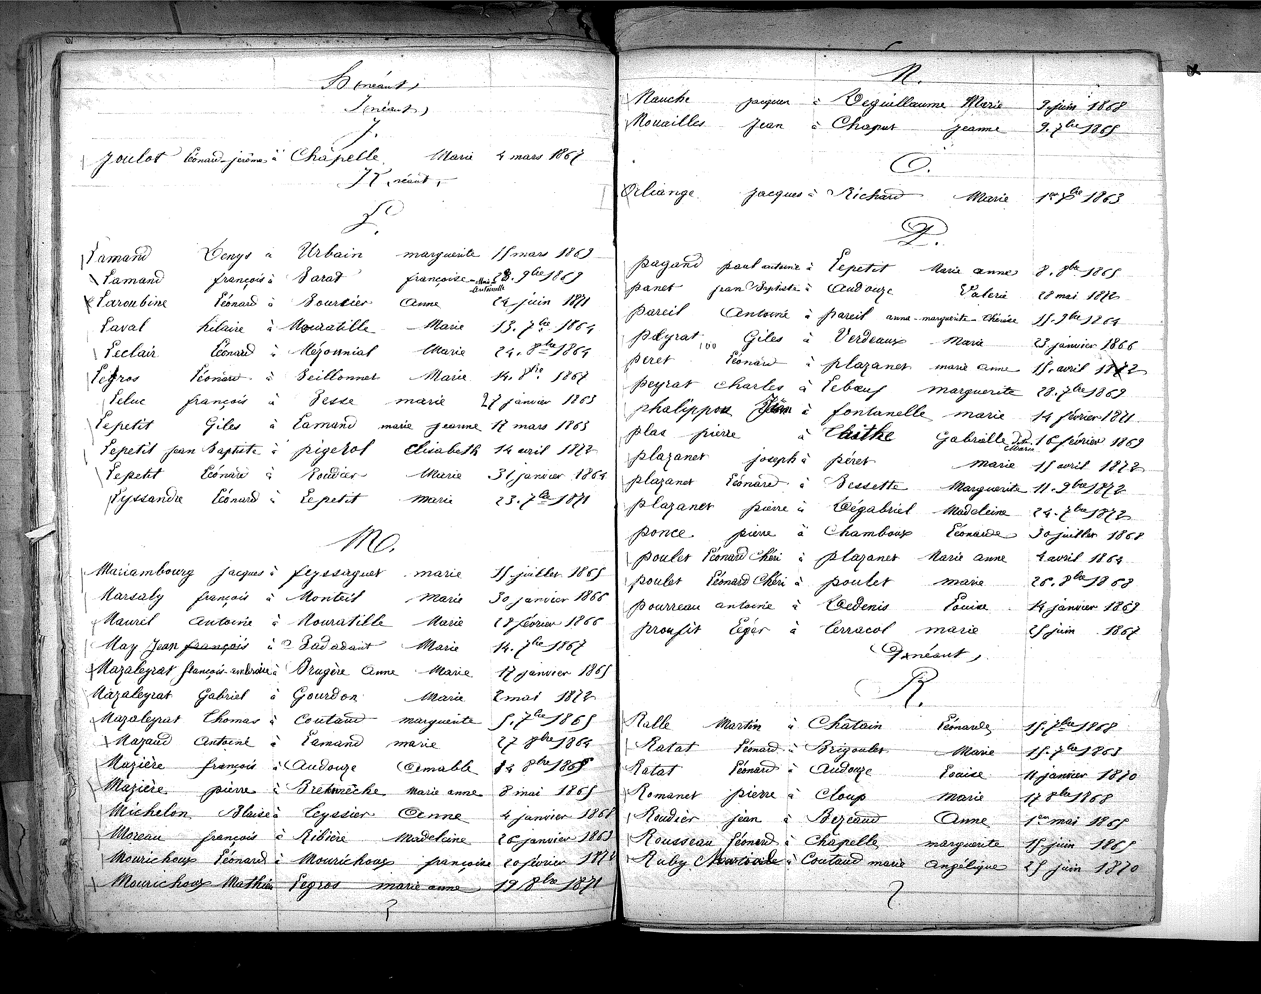 H néant,
I néant,
J.
Joulot Léonard-jérôme à Chapelle Marie 4 mars 1867
K, néant,
L.
Lamand Denys à Urbain marguerite 15 mars 1863
Lamand françois à Sarat françoise 28. 9bre 1869
Laroubine Léonard à Boursier Anne 24 juin 1871
Laval hilaire à Mouratille Marie 13. 7bre 1864
Leclair Léonard à Mézonnial Marie 24. 8bre 1864
Legros Léonard à Seillonnet Marie 14. 8bre 1867
Leluc françois à Besse marie 27 janvier 1863
Lepetit Giles à Lamand marie jeanne 12 mars 1863
Lepetit jean Baptiste à pigerol Elisabeth 14 avril 1872
Lepetit Léonard à Roudier Marie 31 janvier 1864
Leyssandre Léonard à Lepetit marie 23. 7bre 1871
M.
Mariambourg Jacques à feyssaguet marie 15 juillet 1865
Marsaly françois à Monteil Marie 30 janvier 1866
Maurel Antoine à Mouratille Marie 28 février 1866
May Jean françois à Badadaut Marie 14. 7bre 1867
Mazaleyrat françois-ambroise à Brugère Anne Marie 17 janvier 1865
Mazaleyrat Gabriel à Gourdon Marie 2 mai 1872
Mazaleyrat Thomas à Coutaud marguerite 5. 7bre 1865
Mazaud Antoine à Lamand marie 27 8bre 1864
Mazière françois à Audouze Amable 14 8bre 1868
Mazière pierre à marie anne 8 mai 1865
Michelon Blaise à Teyssier Anne 4 janvier 1868
Moreau françois à Ribière Madeleine 26 janvier 1863
Mourichoux Léonard à Mourichoux françoise 20 février 1872
Mourichoux Mathieu Legros marie anne 19 8bre 1871
N.
Nauche jacques à Deguillaume Marie 9. juin 1868
Nouailles Jean à Chaput jeanne 9. 7bre 1865
O.
Orliange jacques à Richard Marie 1er 7bre 1863
P.
pagand paul antoine à Lepetit Marie anne 8. 8bre 1865
panet jean Baptiste à Audouze Valerie 28 mai 1872
pareil Antoine à pareil anne-marguerite-thérèse 15. 9bre 1864
payrat Giles à Verdeaux Marie 23 janvier 1866
peret Léonard à plazanet marie anne 15. avril 1872
peyrat Charles à Lebœuf marguerite 28. 7bre 1869
phalippou Jean à fontanelle marie 14 février 1871
plas pierre à Gabrielle 16 février 1869
plazanet joseph à péret marie 15 avril 1872
plazanet Léonard à Bessette Marguerite 11. 9bre 1872
plazanet pierre à Dégabriel Madeleine 24. 7bre 1872
ponce pierre à Chamboux Léonarde 30 juillet 1868
poulet Léonard Chéri à plazanet Marie anne 4 avril 1864
poulet Léonard Chéri à poulet marie 26. 9bre 1868
pourreau antoine à Dedenis Louise 14 janvier 1869
proufit Léger à Terracol marie 25 juin 1867
Q néant,
R.
Ralle Martin à Chatain Léonarde 15. 7bre 1868
Ratat Léonard à Brigoulet Marie 15. 7bre 1863
Ratat Léonard à Audouze Louise 11 janvier 1870
Romanet pierre à Cloup marie 17 8bre 1868
Roudier jean à Bezeaud Anne 1er mai 1865
Rousseau Léonard à Chapelle marguerite 15 juin 1865
Ruby à Coutaud marie Angélique 25 juin 1870